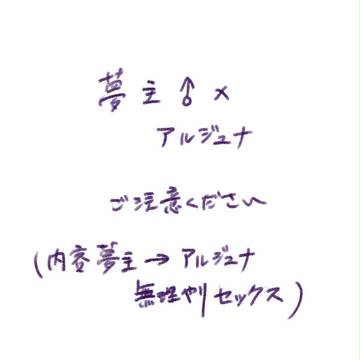 夢主♂×
アルジュナ
ご注意ください
(内容夢主→アルジュナ
無理やりセックス)